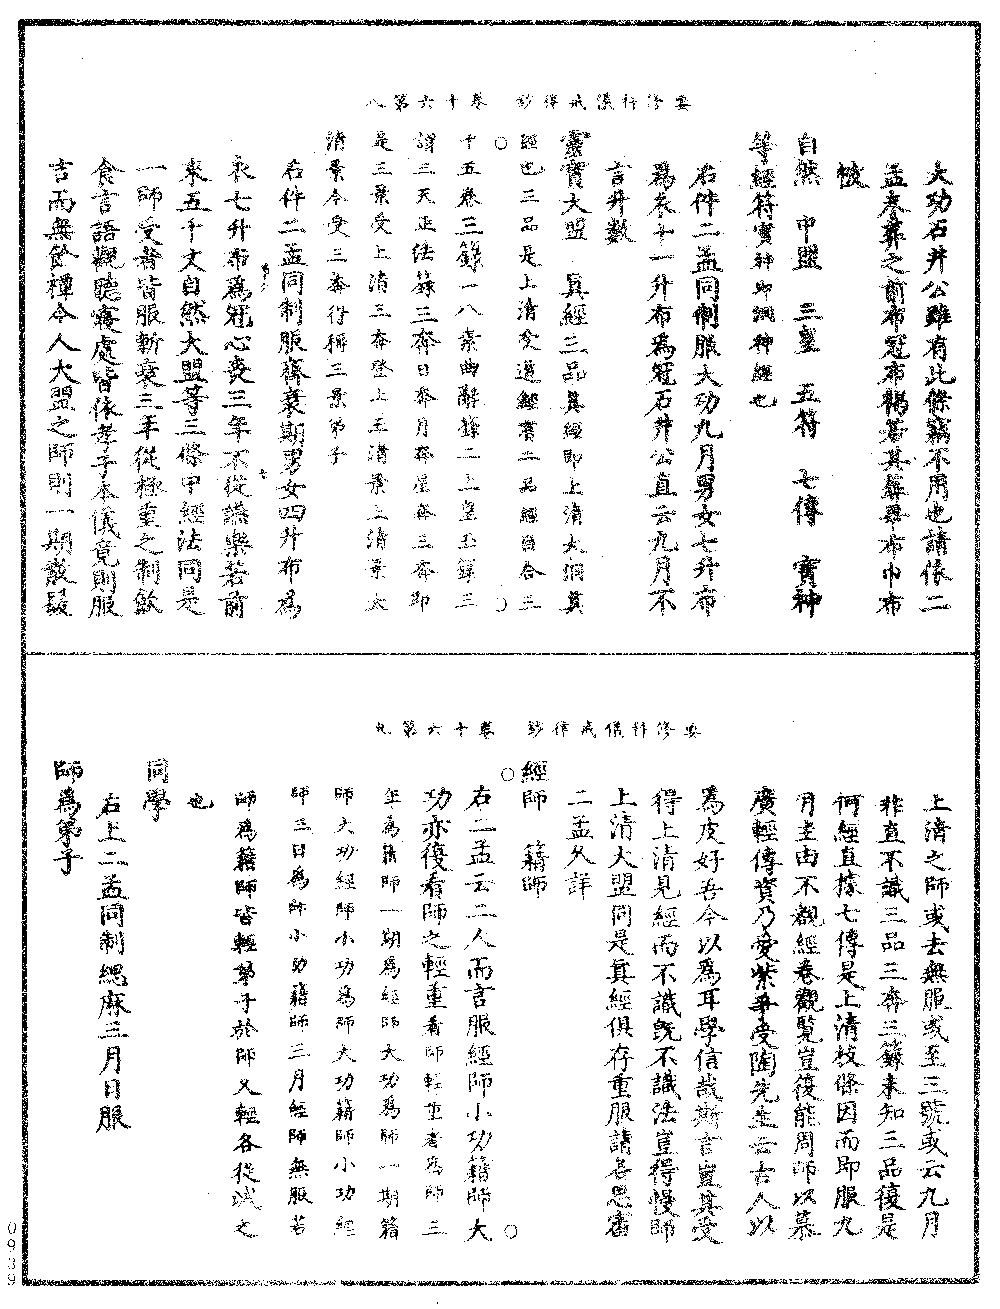 要修行儀戒律鈔　卷十六第八
大功石井公雖有此條竊不用也請依二
孟奉葬之前布冠布褐若其葬畢布巾布
帔
自然　中盟　三皇　五符　七傳　寶神
等經符寶神即洞神經也
右件二孟同制服大功九月男女七升布
爲衣十一升布爲冠石井公直云九月不
言升數
靈寶大盟　真經三品真經即上清大洞真
經也三品是上清受道經有二品經目合三
十五卷三籙一八素曲辭籙二上皇玉籙三
謂三天正法籙三奔日奔月奔星奔三奔即
是三景受上清三奔登上玉清景上清景太
清景今受三奔得稱三景弟子
右件二孟同制服齊衰期男女四升布爲
衣七升布爲冠心喪三年不從讌樂若前
來五千文自然大盟等三條甲經法同是
一師受者皆服斬衰三年從極重之制飲
食言語觀聽寢處皆依孝子本儀竟則服
吉而無餘禫今人大盟之師則一期散髮
要修行儀戒律鈔　卷十六第九
上清之師或去無服或至三號或云九月
非直不識三品三奔三籙未知三品復是
何經直據七傳是上清枝條因而即服九
月主由不觀經卷觀覽豈復能周師以慕
廣輕傳資乃愛紫爭受陶先生云古人以
爲皮好吾今以爲耳學信哉斯言豈其受
得上清見經而不識既不識法豈得慢師
上清大盟同是真經俱存重服請各思審
二孟久詳
經師　籍師
右二孟云二人而言服經師小功籍師大
功亦復看師之輕重看師輕重者爲師三
年爲籍師一期爲經師大功爲師一期籍
師大功經師小功爲師大功籍師小功經
師三日爲師小功籍師三月經師無服若
師爲籍師皆輕弟子於師又輕各從減之
也
同學
右上二孟同制緦麻三月日服
師爲弟子
0939